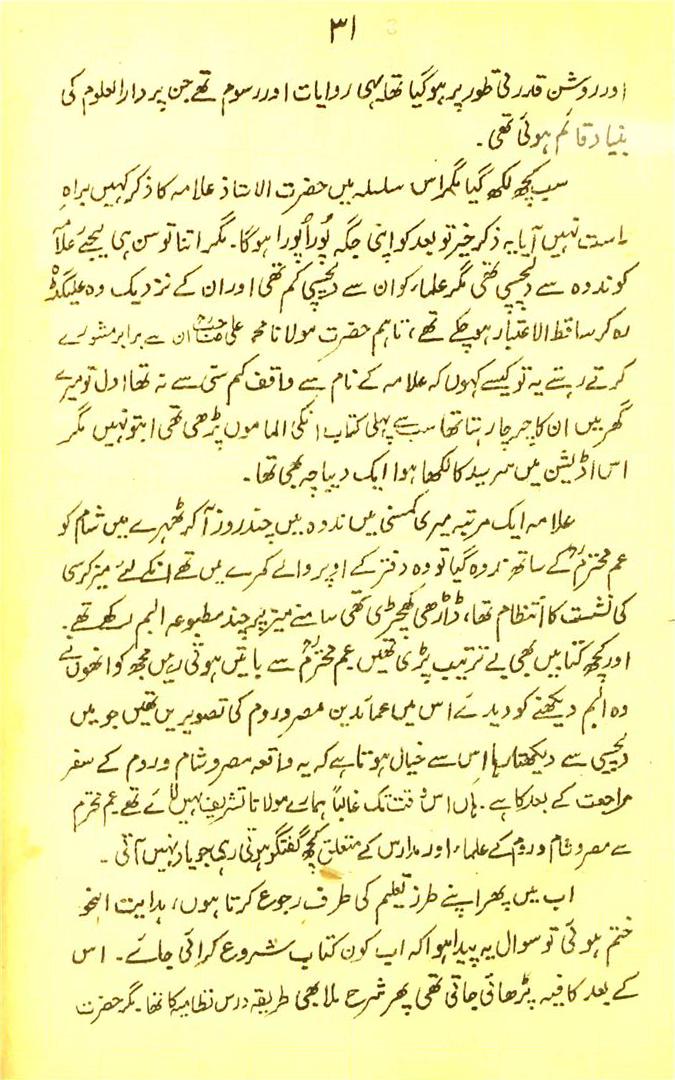 ۳۱
اور روشن قدرتی طور پر ہوگیا تھا یہی روایات اور رسوم تھے جن پر دارالعلوم کی
بنیاد قائم ہوئی تھی۔
سب کچھ لکھ گیا مگر اس سلسلہ میں حضرت الاستاذ علامہ کا ذکر کہیں براہِ
راست نہیں آیا یہ ذکر خیر تو بعد کو اپنی جگہ پُورا پُورا ہوگا۔ مگر اتنا تو سن ہی لیجئے علامہؒ
کو ندوہ سے دلچسپی تھی مگر علماء کو ان سے دلچسپی کم تھی اور ان کے نزدیک وہ علیگڈھ
رہ کر ساقط الاعتبار ہو چکے تھے، تاہم حضرت مولانا محمد علی صاحبؒ ان سے برابر مشورے
کرتے رہتے یہ تو کیسے کہوں کہ علامہ کے نام سے واقف کم سنی سے نہ تھا اول تو میرے
گھر میں ان کا چرچا رہتا تھا سب سے پہلی کتاب انکی الماموں پڑھی تھی اب تو نہیں مگر
اس اڈیشن میں سرسید کا لکھا ہوا ایک دیباچہ بھی تھا۔
علامہ ایک مرتبہ میری کمسنی میں ندوہ میں چند روز آکر ٹھہرے میں شام کو
عم محترمؒ کے ساتھ ندوہ گیا تو وہ دفتر کے اوپر والے کمرے میں تھے انکے لئے میز کرسی
کی نشست کا انتظام تھا، ڈاڑھی کھچڑی تھی سامنے میز پر چند مطبوعہ البم رکھے تھے۔
اور کچھ کتابیں بھی بے ترتیب پڑی تھیں عم محترمؒ سے باتیں ہوتی رہیں مجھ کو انھوں نے
وہ البم دیکھنے کو دیدئے اس میں عمائدین مصر و روم کی تصویریں تھیں جو میں
دلچسپی سے دیکھتا رہا اس سے خیال ہوتا ہے کہ یہ واقعہ مصر و شام و روم کے سفر
مراجعت کے بعد کا ہے۔ ہاں اس وقت تک غالباً ہمارے مولانا تشریف نہیں لائے تھے عم محترم
سے مصر و شام و روم کے علماء اور مدارس کے متعلق کچھ گفتگو ہوتی رہی جو یاد نہیں آتی۔
اب میں پھر اپنے طرز تعلیم کی طرف رجوع کرتا ہوں، ہدایت النحو
ختم ہوئی تو سوال یہ پیدا ہوا کہ اب کون کتاب شروع کرائی جائے۔ اس
کے بعد کافیہ پڑھائی جاتی تھی پھر شرح ملا یہی طریقہ درس نظامیہ کا تھا۔ مگر حضرت